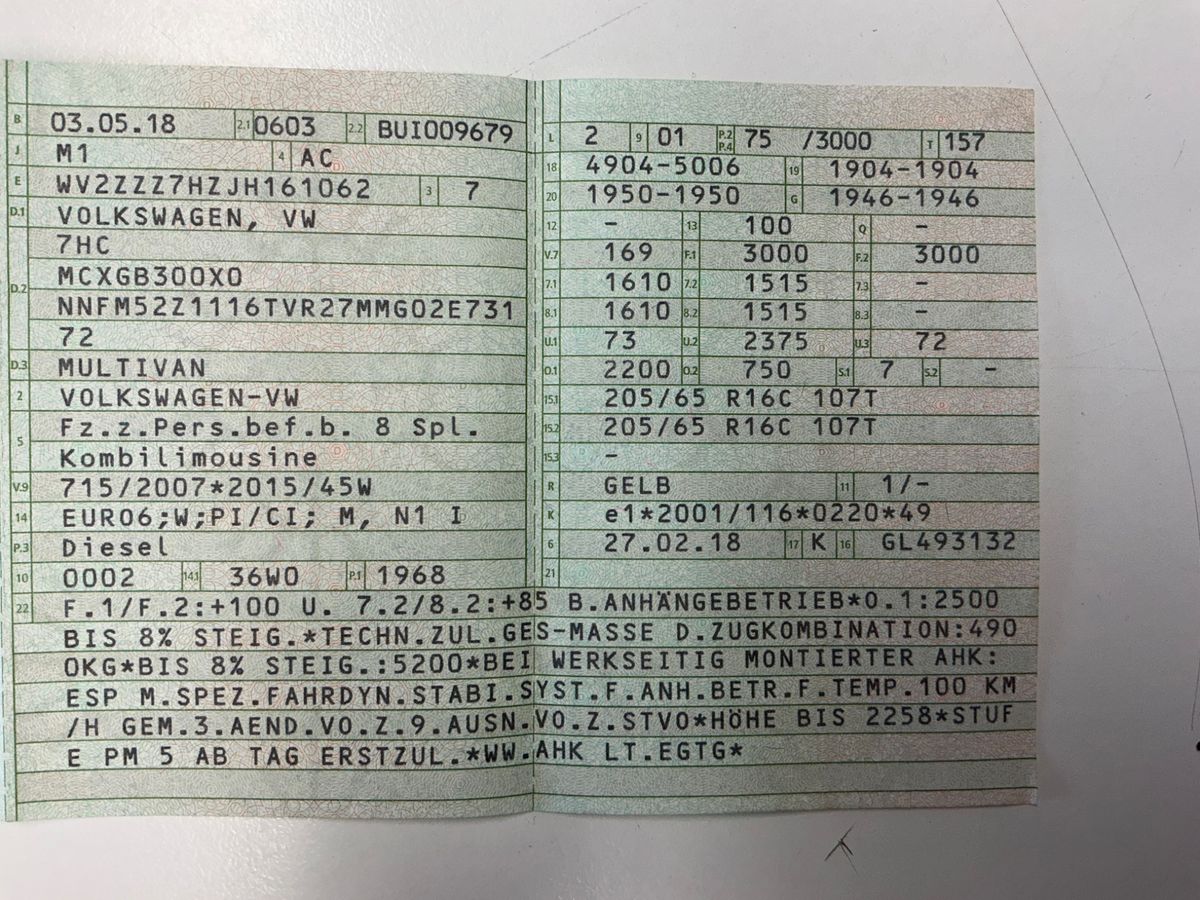 B 03.05.18 2.1 0603 2.2 BUI009679
J M1 4 AC
E WV2ZZZ7HZJH161062 3 7
D.1 VOLKSWAGEN, VW
7HC
D.2 MCXGB300X0
NNFM52Z1116TVR27MMG02E731
72
D.3 MULTIVAN
2 VOLKSWAGEN-VW
5 Fz.z.Pers.bef.b. 8 Spl.
Kombilimousine
V.9 715/2007*2015/45W
14 EURO6;W;PI/CI; M, N1 I
P.3 Diesel
10 0002 14.1 36W0 P.1 1968
L 2 9 01 P.2 P.4 75 /3000 T 157
18 4904-5006 19 1904-1904
20 1950-1950 G 1946-1946
12 - 13 100 Q -
V.7 169 F.1 3000 F.2 3000
7.1 1610 7.2 1515 7.3 -
8.1 1610 8.2 1515 8.3 -
U.1 73 U.2 2375 U.3 72
O.1 2200 O.2 750 S.1 7 S.2 -
15.1 205/65 R16C 107T
15.2 205/65 R16C 107T
15.3 -
R GELB 11 1/-
K e1*2001/116*0220*49
6 27.02.18 17 K 16 GL493132
21
22 F.1/F.2:+100 U. 7.2/8.2:+85 B.ANHÄNGEBETRIEB*O.1:2500
BIS 8% STEIG.*TECHN.ZUL.GES-MASSE D.ZUGKOMBINATION:490
0KG*BIS 8% STEIG.:5200*BEI WERKSEITIG MONTIERTER AHK:
ESP M.SPEZ.FAHRDYN.STABI.SYST.F.ANH.BETR.F.TEMP.100 KM
/H GEM.3.AEND.VO.Z.9.AUSN.VO.Z.STVO*HÖHE BIS 2258*STUF
E PM 5 AB TAG ERSTZUL.*WW.AHK LT.EGTG*